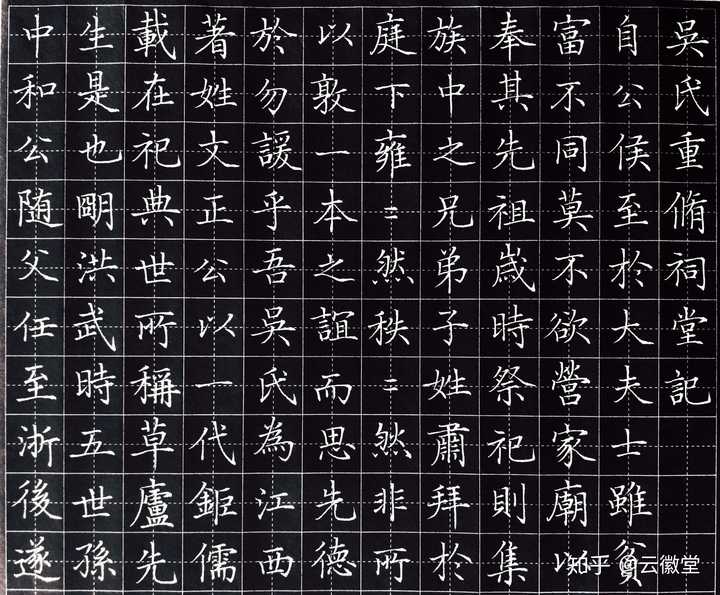 吳氏重脩祠堂記
自公侯至於大夫士雖貧
富不同莫不欲營家廟以
奉其先祖歲時祭祀則集
族中之兄弟子姓肅拜於
庭下雍=然秩=然非所
以敦一本之誼而思先德
於勿諼乎吾吳氏為江西
著姓文正公以一代鉅儒
載在祀典世所稱草廬先
生是也明洪武時五世孫
中和公随父任至浙後遂
知乎 @云徽堂